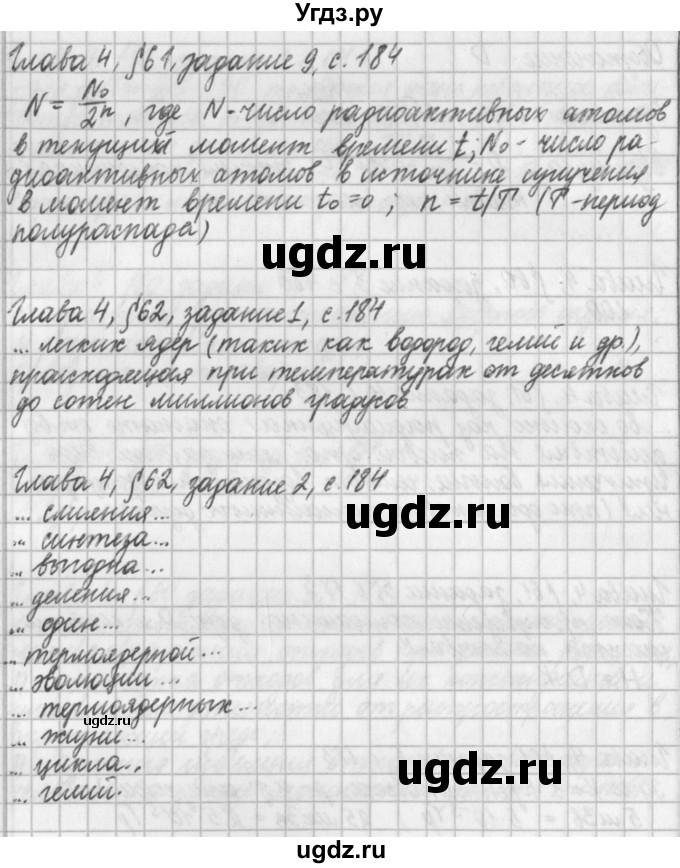 Угдз.ру
Глава 4, §61, задание 9, с. 184
N = N₀/2ⁿ, где N - число радиоактивных атомов
в текущий момент времени t; N₀ - число ра-
диоактивных атомов в источнике излучения
в момент времени t₀=0; n = t/T (T - период
полураспада)
ugdz.ru
Глава 4, §62, задание 1, с. 184
... легких ядер (таких как водород, гелий и др.),
происходящая при температурах от десятков
до сотен миллионов градусов.
ugdz.ru
Глава 4, §62, задание 2, с. 184
... слияния...
ugdz.ru
... синтеза...
... выгодна...
... деления...
... один...
... термоядерной...
... эволюции...
... термоядерных...
ugdz.ru
... жизни...
... цикла...
ugdz.ru
... гелий.
ugdz.ru